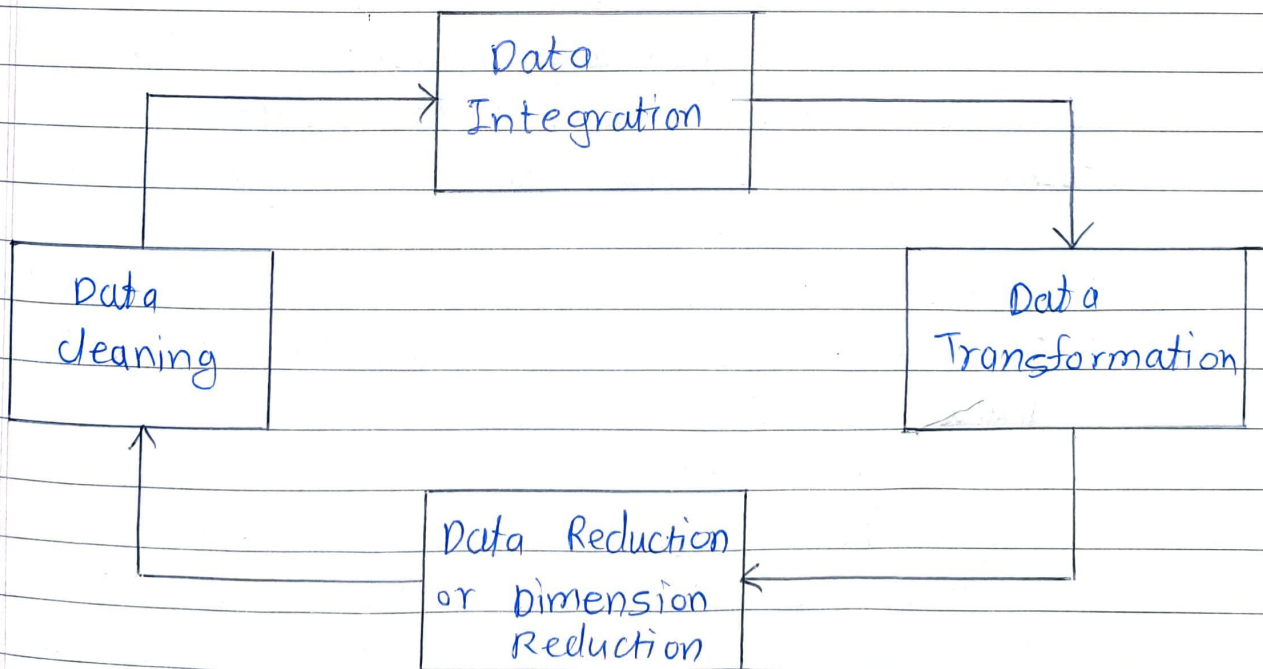 Data
Integration
Data
cleaning
Data
Transformation
Data Reduction
or Dimension
Reduction